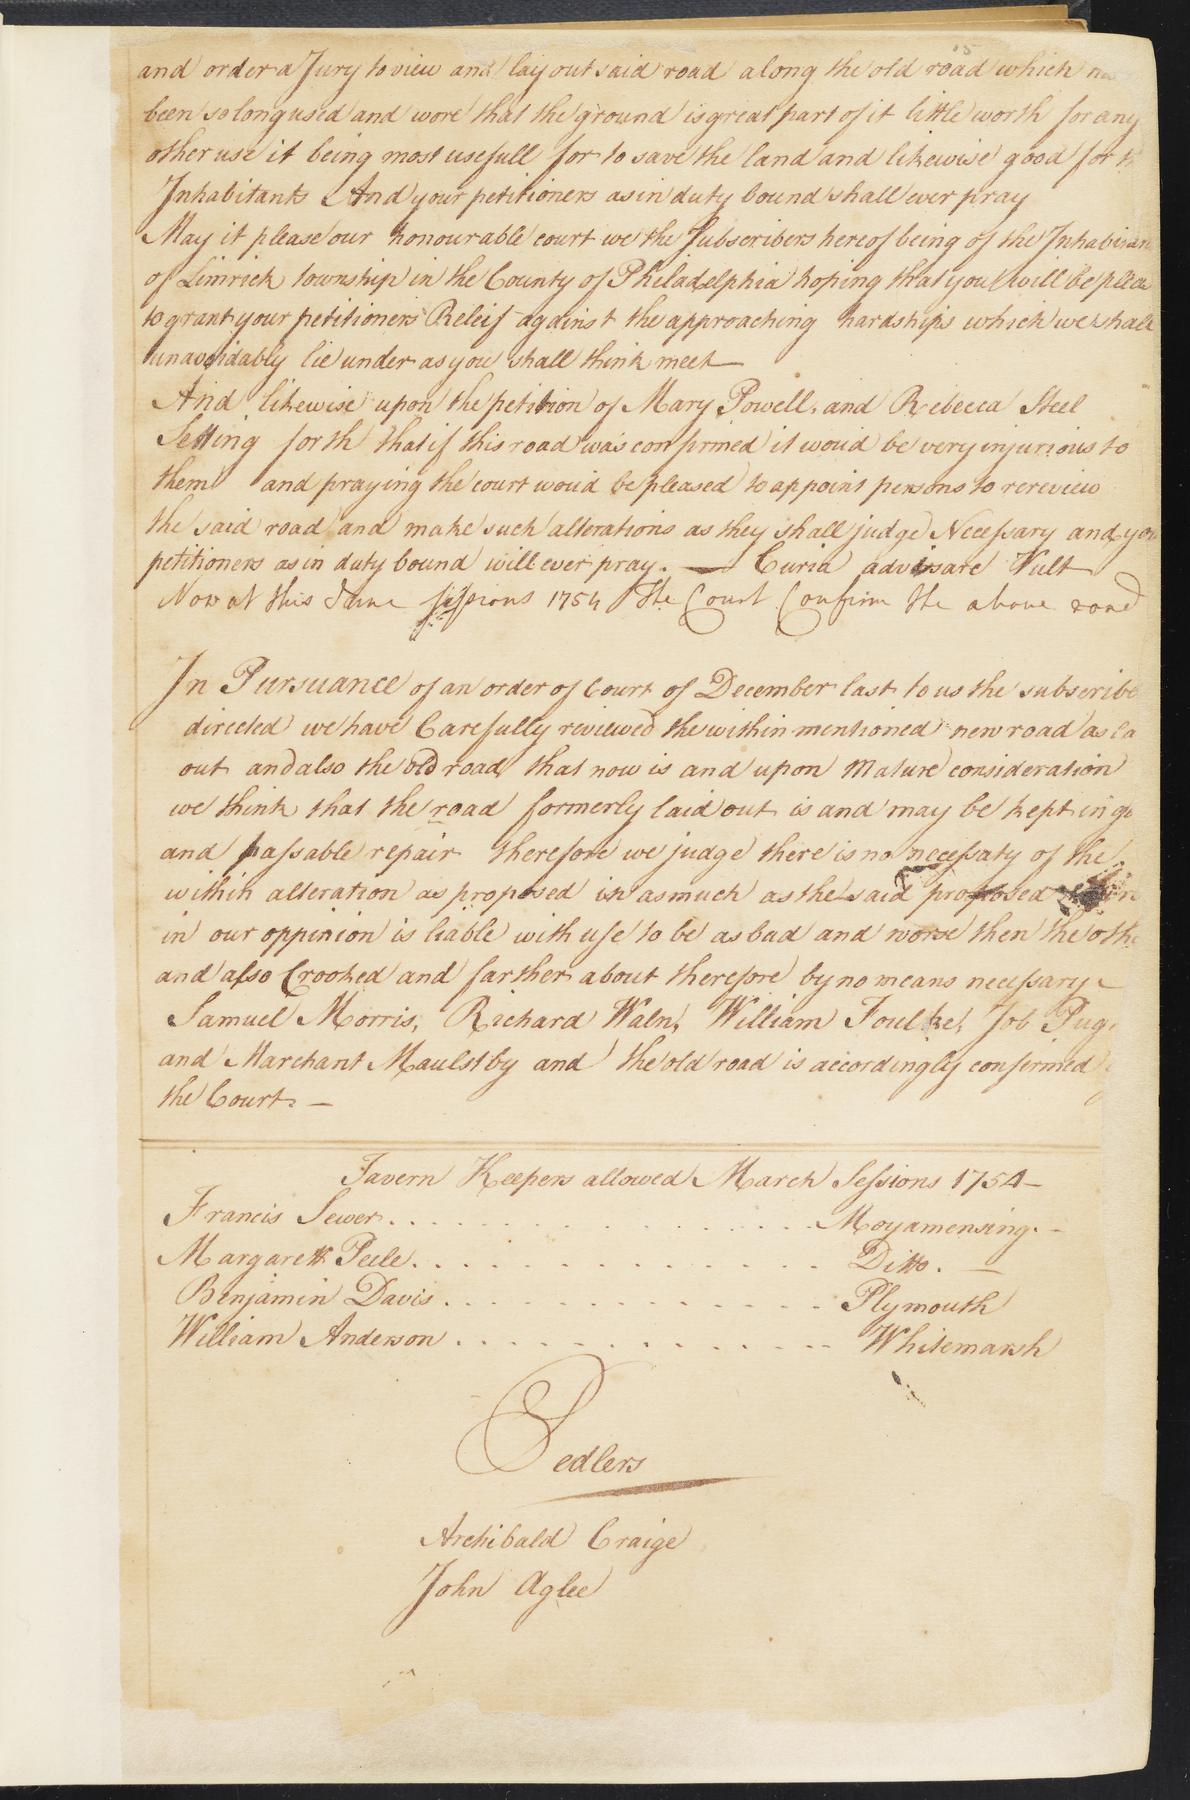 and order a Jury to view and lay out said road along the old road which
been so long used and wore that the ground is great part of it little worth for any
other use it being most usefull for to save the land and likewise good for
Inhabitants And your petitioners as in duty bound shall ever pray
May it please our honourable court we the Subscribers hereof being of the Inhabitan
of Limrick township in the County of Philadelphia hoping that you will be plea
to grant your petitioners Releif against the approaching hardships which we shall
unavoidably lie under as you shall think meet —
And likewise upon the petition of Mary Powell, and Rebecca Steel
Setting forth that if this road was confirmed it would be very injurious to
them and praying the court would be pleased to appoint persons to rereview
the said road and make such alterations as they shall judge Necessary and you
petitioners as in duty bound will ever pray. — Curia advisare Vult
Now at this June sessions 1754 the Court Confirm the above road
In Pursuance of an order of Court of December last to us the subscribe
directed we have Carefully reviewed the within mentioned new road as la
out and also the old road that now is and upon Mature consideration
we think that the road formerly laid out is and may be kept in go
and passable repair therefore we judge there is no necessaty of the
within alteration as proposed in as much as the said proposed
in our oppinion is liable with use to be as bad and worse then the othe
and also Crooked and farther about therefore by no means necessary
Samuel Morris, Richard Waln, William Foulke, Job Pug
and Marchant Maulstby and the old road is accordingly confirmed
the Court. —
Tavern Keepers allowed March Sessions 1754 —
Francis Sewer . . . . . . . . . . . . . . . . . Moyamensing. —
Margarett Peele . . . . . . . . . . . . . . . Ditto. —
Benjamin Davis . . . . . . . . . . . . . . Plymouth
William Anderson . . . . . . . . . . . . . Whitemarsh
Pedlers
Archibald Craige
John Aglee